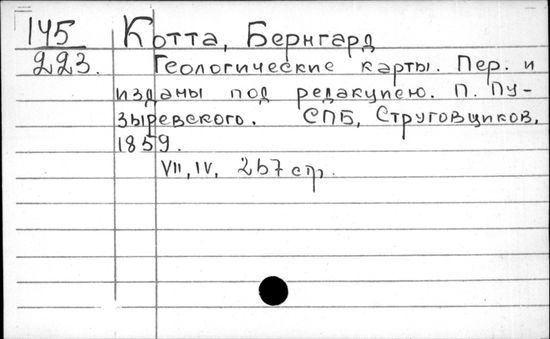 145
223.
Котта, Бернгард
Геологические карты. Пер. и
изданы под редакциею. П. Пу-
зыревского. СПБ, Струговщиков,
1859.
VII, IV, 267 стр.